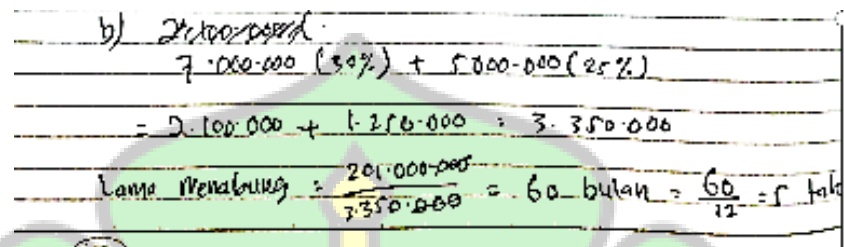 b)
7.000.000 (30%) + 5000.000 (25%)
= 2.100.000 + 1.250.000 = 3.350.000
Lama Menabung = 201.000.000 / 3.350.000 = 60 bulan = 60 / 12 = 5